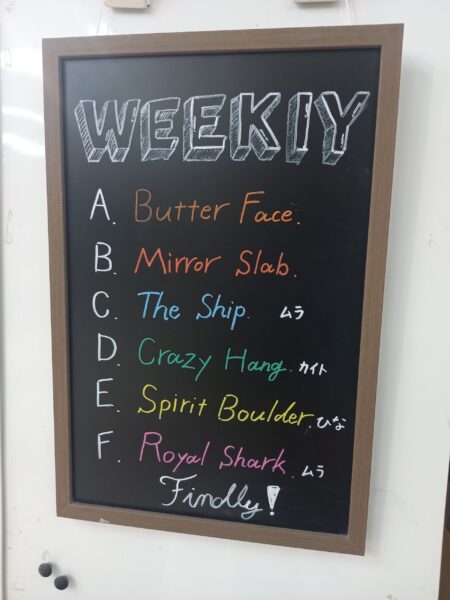 WEEKIY
A. Butter Face.
B. Mirror Slab.
C. The Ship. ムラ
D. Crazy Hang. カイト
E. Spirit Boulder. ひな
F. Royal Shark. ムラ
Findly!